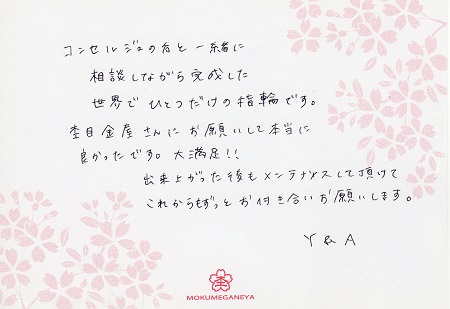 コンセルジュの方と一緒に
相談しながら完成した
世界でひとつだけの指輪です。
杢目金屋さんにお願いして本当に
良かったです。大満足!!
出来上がった後もメンテナンスして頂けて
これからもずっとお付き合いお願いします。
Y & A
MOKUMEGANEYA